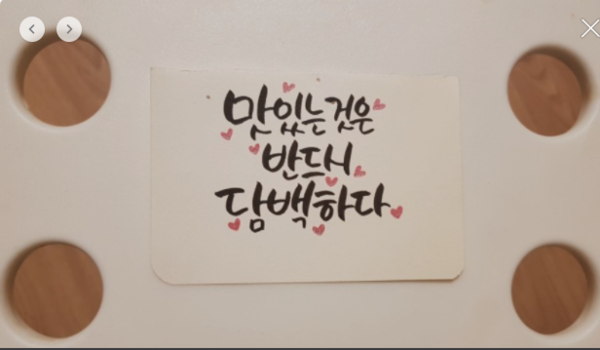 맛있는것은
반드시
담백하다